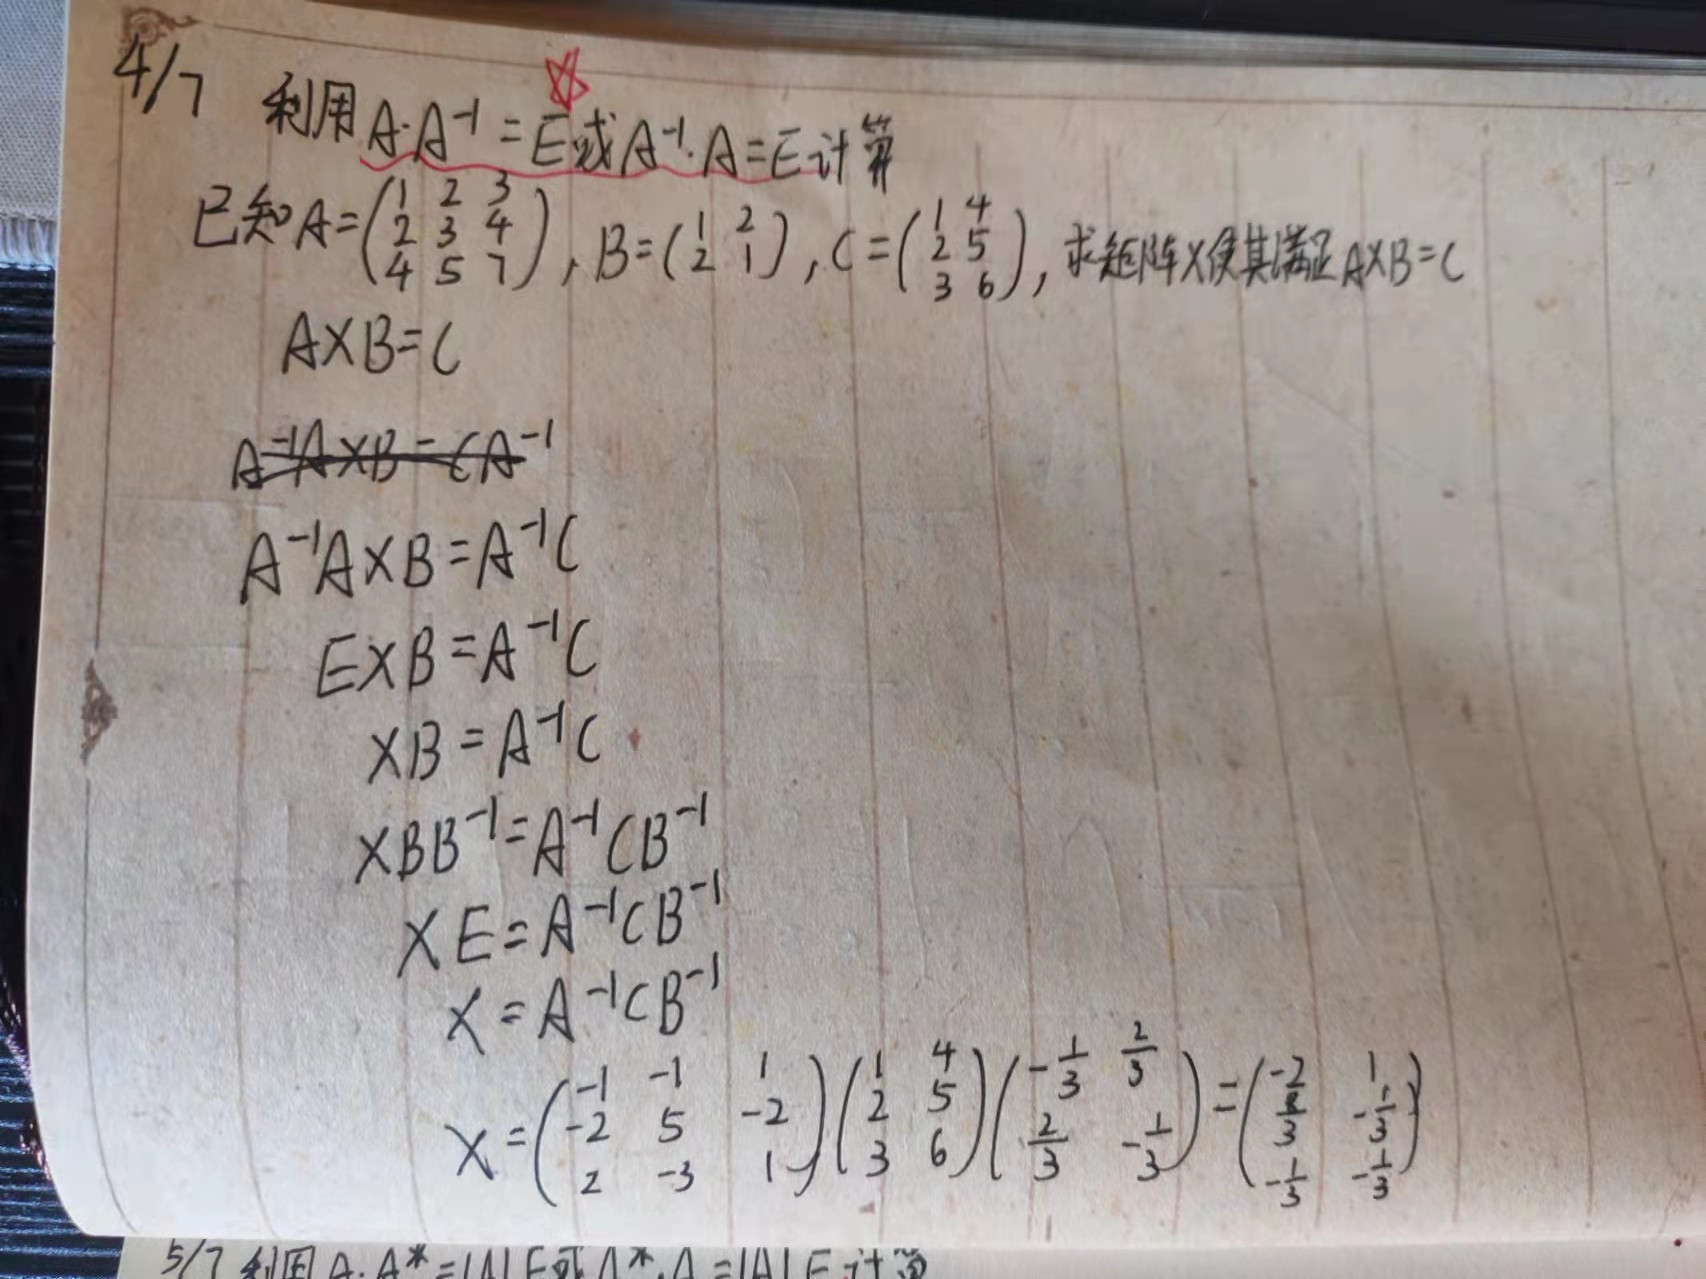 4/7 利用A·A⁻¹=E或A⁻¹·A=E计算
已知A=(1 2 3
2 3 4
4 5 7), B=(1 2
2 1), C=(1 4
2 5
3 6), 求矩阵X使其满足AXB=C
AXB=C
A⁻¹AXB=CA⁻¹
A⁻¹AXB=A⁻¹C
EXB=A⁻¹C
XB=A⁻¹C
XBB⁻¹=A⁻¹CB⁻¹
XE=A⁻¹CB⁻¹
X=A⁻¹CB⁻¹
X=(-1 -1 1
-2 5 -2
2 -3 1)(1 4
2 5
3 6)(-1/3 2/3
2/3 -1/3)=(-2 1
2/3 -1/3
-1/3 -1/3)
5/7 利用A·A*=|A|E或A*·A=|A|E计算